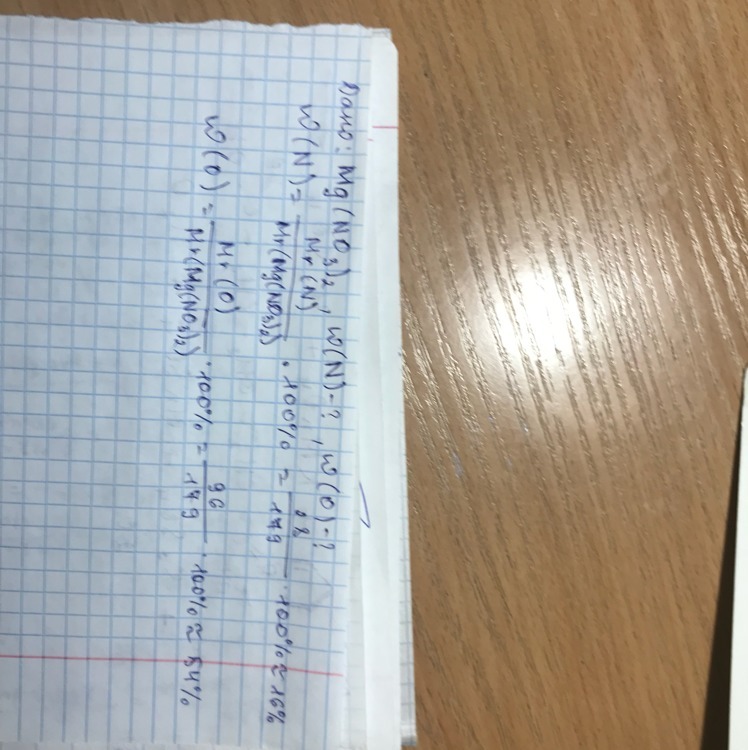 Дано: Mg(NO₃)₂, ω(N)-?, ω(O)-?
ω(N) = Mr(N) / Mr(Mg(NO₃)₂) · 100% = 28 / 149 · 100% ≈ 16%
ω(O) = Mr(O) / Mr(Mg(NO₃)₂) · 100% = 96 / 149 · 100% ≈ 54%